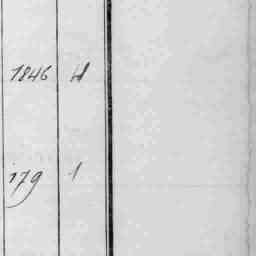 1846 H
179 1